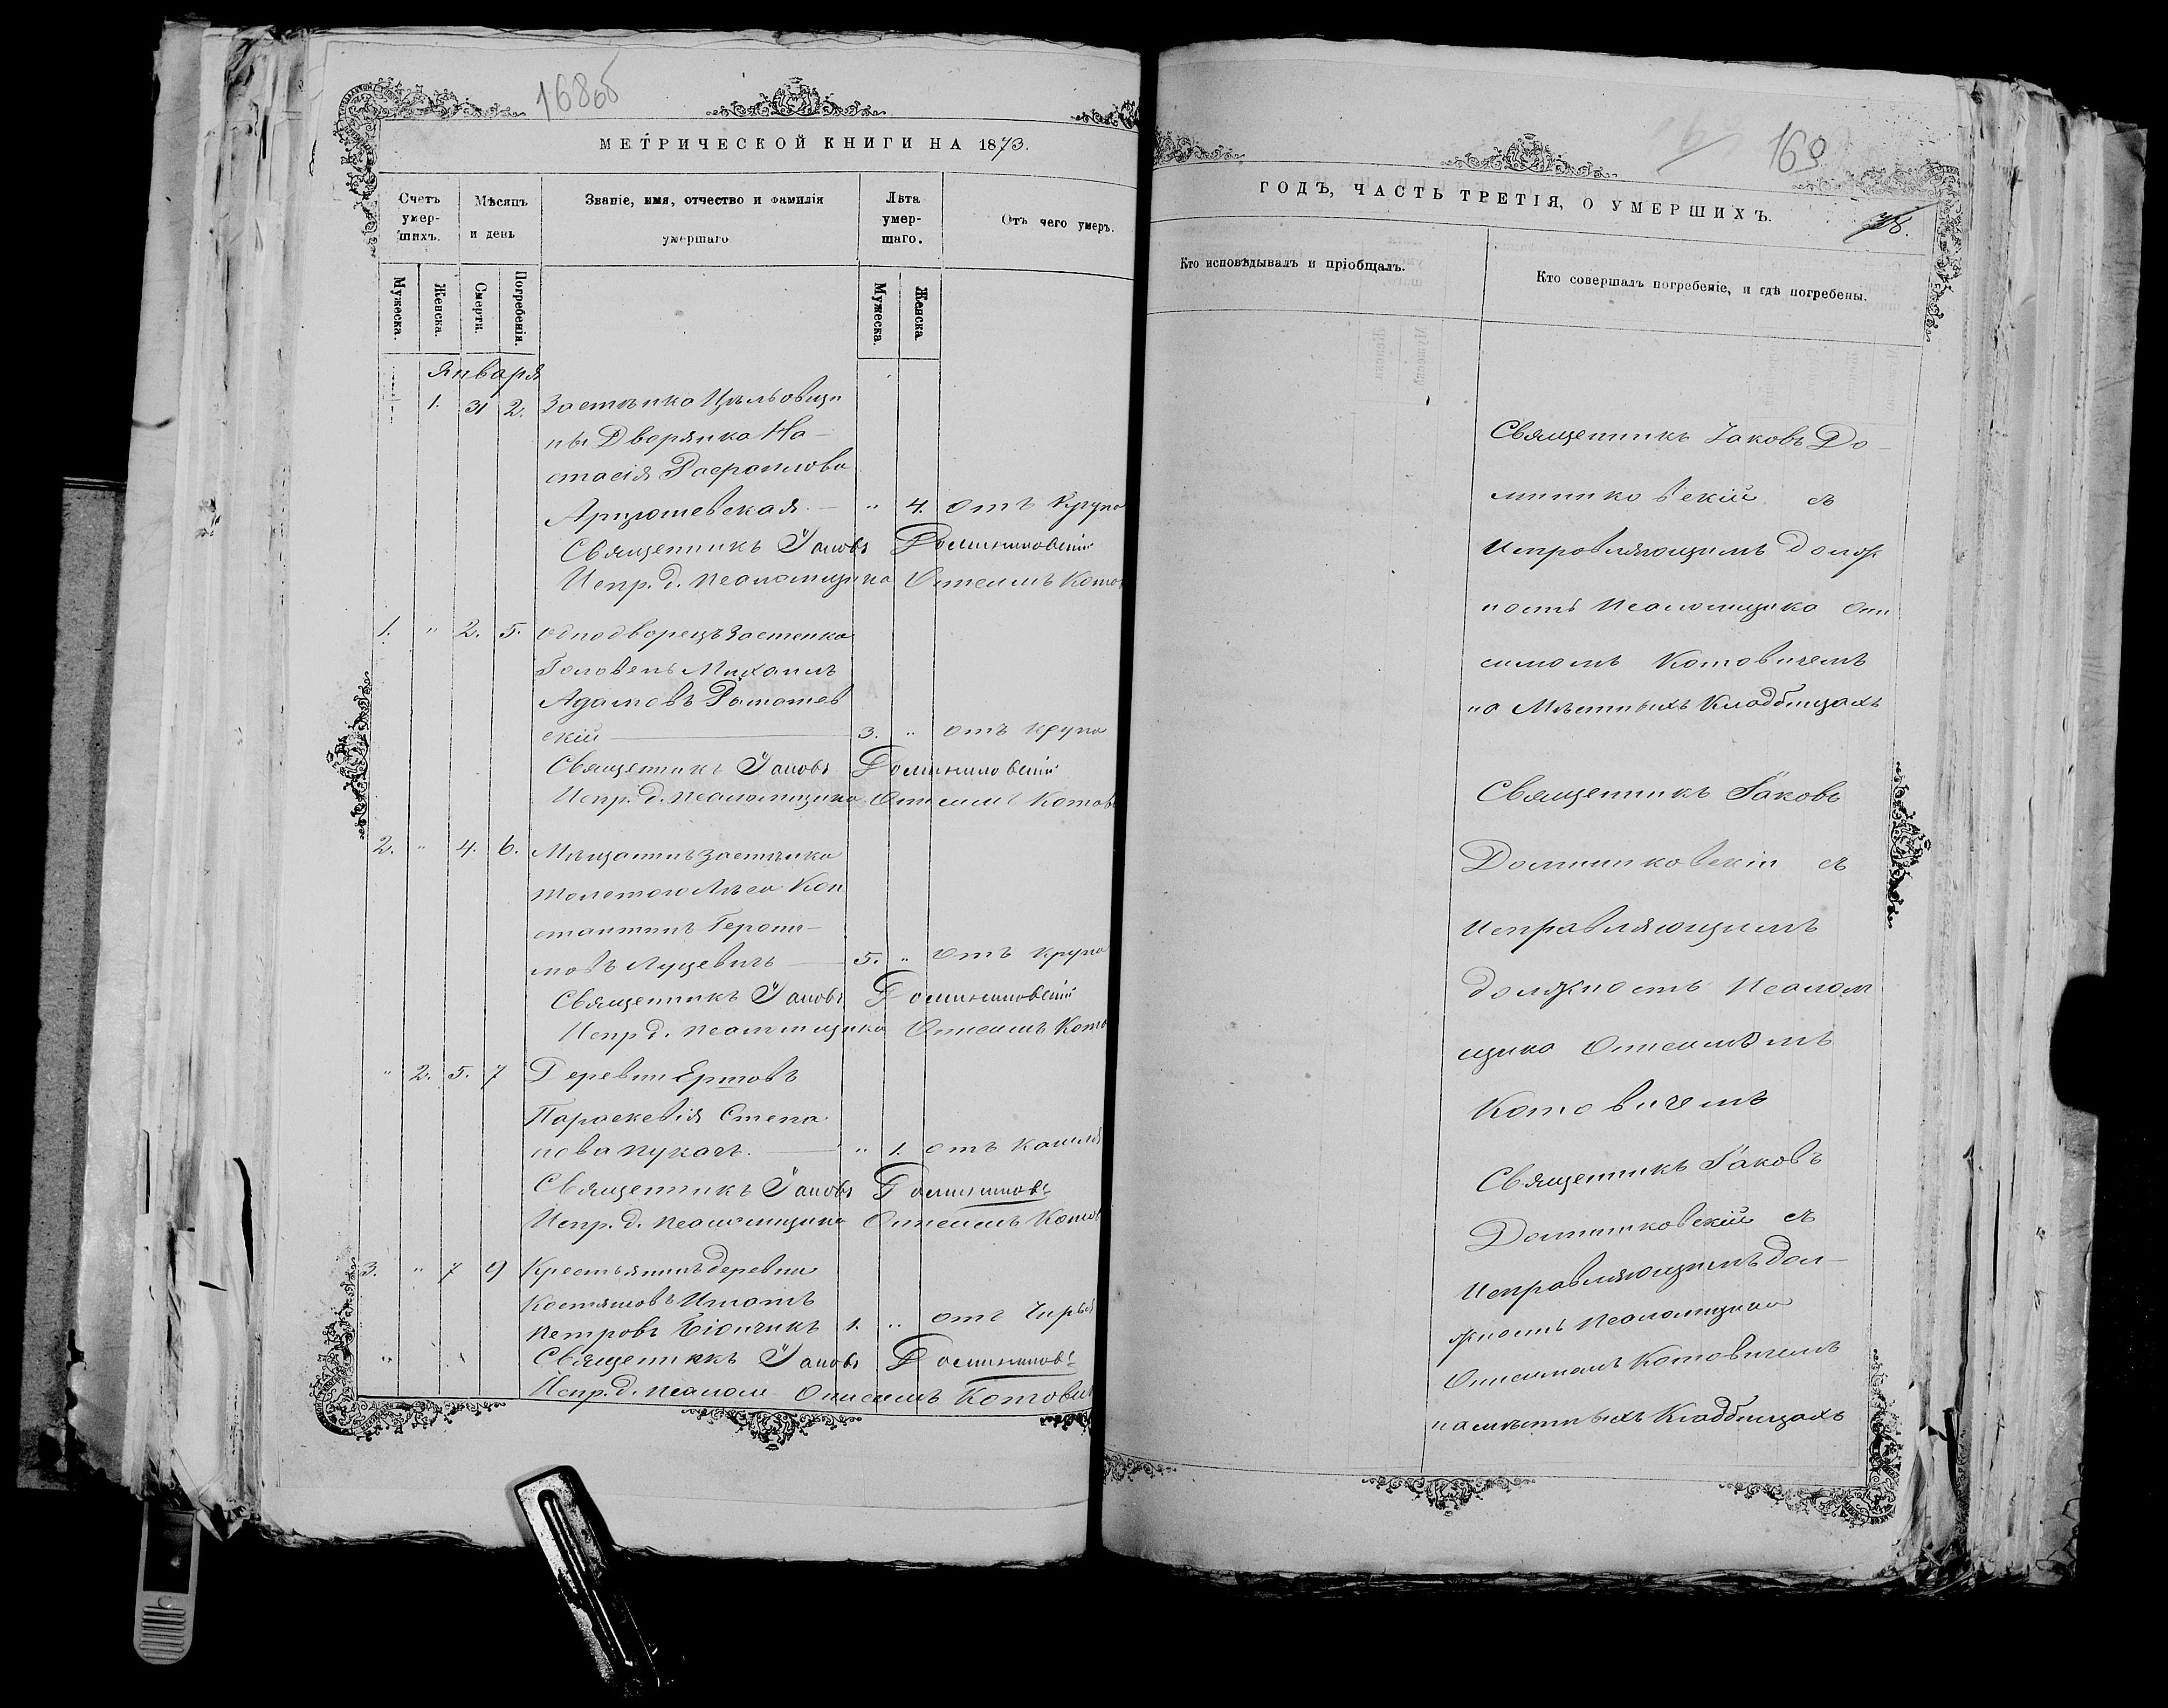 168об
МЕТРИЧЕСКОЙ КНИГИ НА 1873.
Счетъ умер-шихъ.
Мѣсяцъ и день
Званіе, имя, отчество и фамилія умершаго
Лѣта умер-шаго.
Отъ чего умеръ.
Мужеска.
Женска.
Смерти.
Погребенія.
Мужеска.
Женска
Января
1. 31 2. Застѣнка
ны Дворянка На-
стасія
" 4. отъ Крупа
Священникъ Іаковъ Доминиковскій
Испр. д. псаломщика Онисимъ Котов
1. " 2. 5. Однодворецъ Застенка
Головень Михаилъ
Адамовъ
скій 3. " отъ крупа
Священникъ Іаковъ Доминиковскій
Испр. д. псаломщика Онисимъ Котов
2. " 4. 6. Мѣщанинъ застѣнка
Толстого Лѣса Кон
стантинъ Герони-
мовъ Луцевичъ 5. " отъ крупа
Священникъ Іаковъ Доминиковскій
Испр д. псаломщика Онисимъ Кото
" 2. 5. 7 Деревни
Параскевія Степа
нова Пукачъ. " 1. отъ кашля
Священникъ Іаковъ Домиников
Испр. д. псаломщика Онисимъ Котов
3. " 7 9 Крестьянинъ деревни
Костяшовъ Игнатъ
Петровъ 1. " отъ
Священникъ Іаковъ Домиников
Испр. д. псалом Онисимъ Котович
169
ГОДЪ, ЧАСТЬ ТРЕТІЯ, О УМЕРШИХЪ.
Кто исповѣдывалъ и пріобщалъ.
Кто совершалъ погребеніе, и гдѣ погребены.
Священникъ Іаковъ До-
миниковскій съ
Исправляющимъ долж
ность псаломщика Они
симомъ Котовичемъ
на Мѣстныхъ Кладбищахъ
Священникъ Іаковъ
Доминиковскій съ
Исправляющимъ
должность псалом
щика Онисимомъ
Котовичемъ
Священникъ Іаковъ
Доминиковскій съ
Исправляющимъ дол-
жность псаломщика
Онисимомъ Котовичемъ
на мѣстныхъ Кладбищахъ